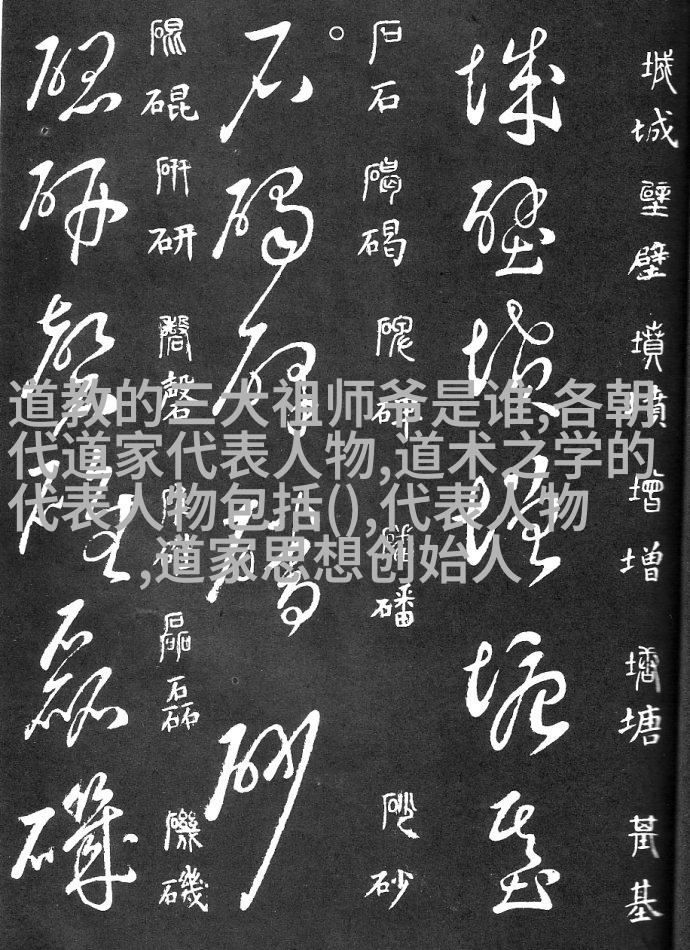 城壁墳增塘基
城城壁壁墳墳增增塘塘基基
石碣碑磻砂
石石碣碣碑碑磻磻砂砂
研磬磊磯
研研磬磬磊磊磯磯
道教的三大祖师爷是谁,各朝
代道家代表人物,道术之学的
代表人物包括(),代表人物
,道家思想创始人